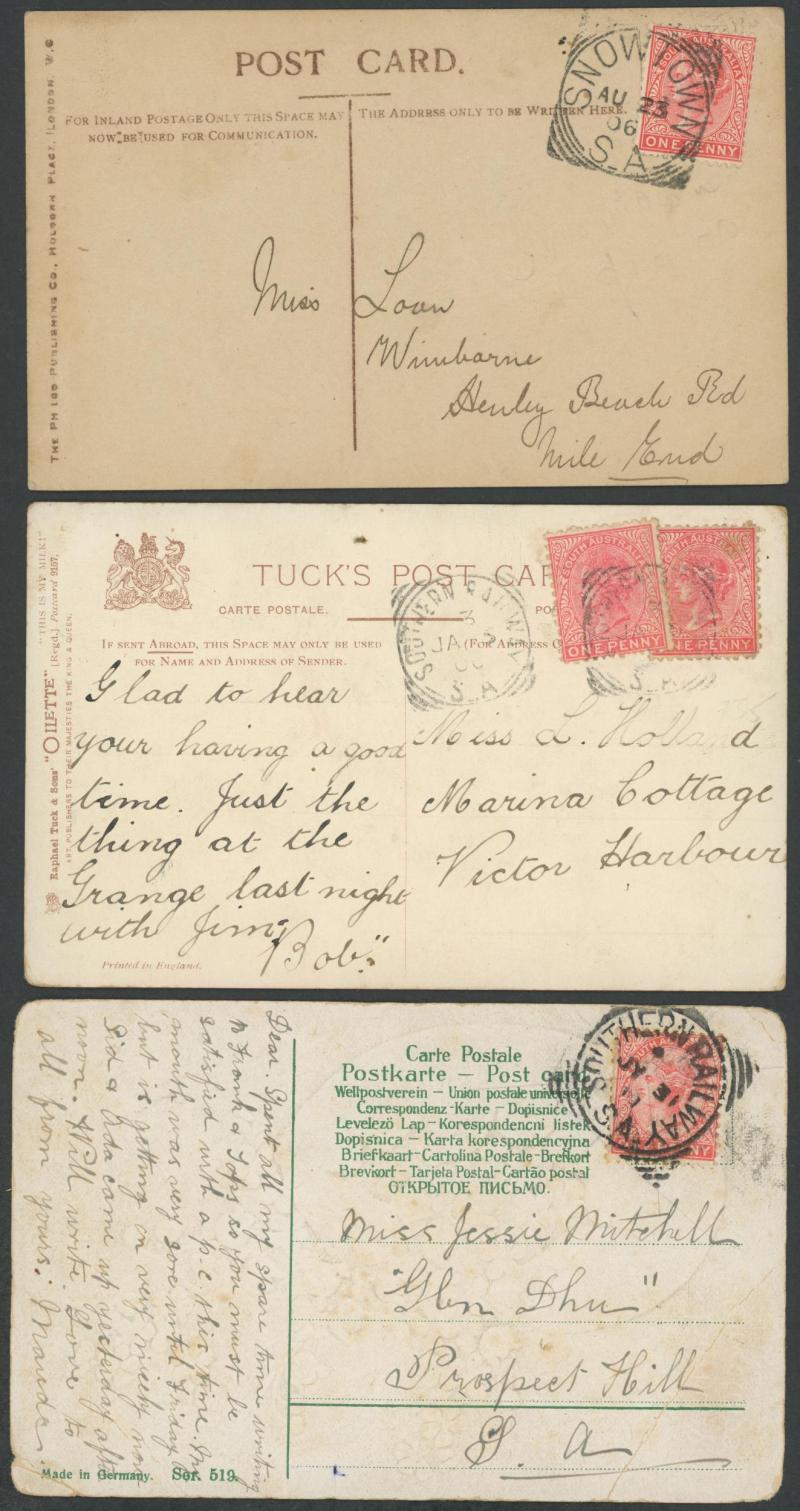 POST CARD.
FOR INLAND POSTAGE ONLY THIS SPACE MAY
NOW BE USED FOR COMMUNICATION.
THE ADDRESS ONLY TO BE WRITTEN HERE.
SNOWTOWN
AU 23
06
S.A
SOUTH AUSTRALIA
ONE PENNY
PUBLISHING CO., HOLBORN PLACE, LONDON, W.C
Miss Loan
Wimbarne
Henley Beach Rd
Mile End
TUCK'S POST CAR
CARTE POSTALE.
PO
IF SENT ABROAD, THIS SPACE MAY ONLY BE USED
FOR NAME AND ADDRESS OF SENDER.
(FOR ADDRESS O
SOUTHERN RAILWAY
3
JA
S.A
SOUTH AUSTRALIA
ONE PENNY
TH AUSTRALIA
NE PENNY
S.A
Raphael Tuck & Sons' "OILETTE" [Regd.] Postcard 9157.
"THIS IS MY MILK!"
ART PUBLISHERS TO THEIR MAJESTIES THE KING & QUEEN.
Glad to hear
your having a good
time. Just the
thing at the
Grange last night
with Jim.
Bob"
Miss L. Holland
Marina Cottage
Victor Harbour
Printed in England.
Dear. Spent all my spare time writing
to Frank & Tops so you must be
satisfied with a p.c this time. My
mouth was very sore until Friday
but is getting on very nicely now
Sid & Ada came up yesterday after
noon. Will write. Love to
all from yours. Maude.
Carte Postale
Postkarte — Post carte
Weltpostverein – Union postale universelle
Correspondenz-Karte – Dopisnice
Levelező Lap – Korespondencni listek
Dopisnica – Karta korespondencyjna
Briefkaart – Cartolina Postale – Brefkort
Brevkort – Tarjeta Postal – Cartão postal
ОТКРЫТОЕ ПИСЬМО.
SOUTHERN RAILWAY S.A
Miss Jessie Mitchell
"Glen Dhu"
Prospect Hill
S. A
Made in Germany. Ser. 519.